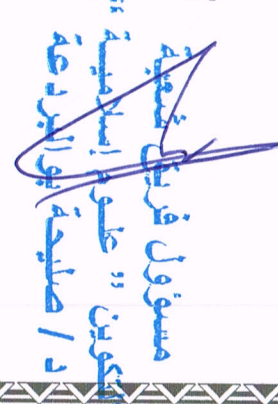 مسؤول فريق شعبة
التكوين " علوم إسلامية "
د / صليحة بوالبردعة